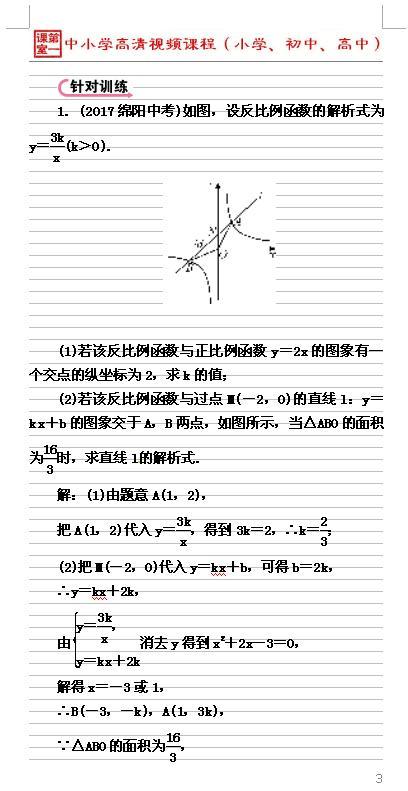 课第
堂一 中小学高清视频课程（小学、初中、高中）
针对训练
1. (2017 绵阳中考)如图，设反比例函数的解析式为
y＝3k/x(k＞0).
(1)若该反比例函数与正比例函数 y＝2x 的图象有一
个交点的纵坐标为 2，求 k 的值；
(2)若该反比例函数与过点 M(－2，0)的直线 l：y＝
kx＋b 的图象交于 A，B 两点，如图所示，当△ABO 的面积
为16/3时，求直线 l 的解析式.
解：(1)由题意 A(1，2)，
把 A(1，2)代入 y＝3k/x，得到 3k＝2，∴k＝2/3；
(2)把 M(－2，0)代入 y＝kx＋b，可得 b＝2k，
∴y＝kx＋2k，
由{y＝3k/x，y＝kx＋2k 消去 y 得到 x²＋2x－3＝0，
解得 x＝－3 或 1，
∴B(－3，－k)，A(1，3k)，
∵△ABO 的面积为16/3，
3